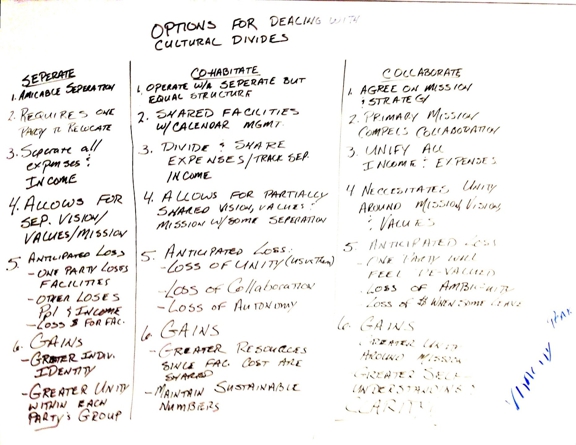 OPTIONS FOR DEALING WITH
CULTURAL DIVIDES
SEPERATE
1. AMICABLE SEPERATION
2. REQUIRES ONE
PARTY TO RELOCATE
3. Separate all
expenses &
INCOME
4. ALLOWS FOR
SEP. VISION/
VALUES/MISSION
5. ANTICIPATED LOSS
- ONE PARTY LOSES
FACILITIES
- OTHER LOSES
PPL & INCOME
- LOSS $ FOR FAC.
6. GAINS
- GREATER INDIV.
IDENTITY
- GREATER UNITY
WITHIN EACH
PARTY'S GROUP
CO-HABITATE
1. OPERATE W/A SEPERATE BUT
EQUAL STRUCTURE
2. SHARED FACILITIES
W/CALENDAR MGMT.
3. DIVIDE & SHARE
EXPENSES/TRACK SEP.
INCOME
4. ALLOWS FOR PARTIALLY
SHARED VISION, VALUES &
MISSION W/SOME SEPERATION
5. ANTICIPATED LOSS:
- LOSS OF UNITY (US VS THEM)
- LOSS OF COLLABORATION
- LOSS OF AUTONOMY
6. GAINS
- GREATER RESOURCES
SINCE FAC. COST ARE
SHARED
- MAINTAIN SUSTAINABLE
NUMBERS
COLLABORATE
1. AGREE ON MISSION
& STRATEGY
2. PRIMARY MISSION
COMPELS COLLABORATION
3. UNIFY ALL
INCOME & EXPENSES
4 NECESSITATES UNITY
AROUND MISSION, VISION
& VALUES
5. ANTICIPATED LOSS
- ONE PARTY WILL
FEEL DE-VALUED
- LOSS OF AMBIGUITY
LOSS OF $ WHEN SOME LEAVE
6. GAINS
GREATER UNITY
AROUND MISSION
GREATER SELF
UNDERSTANDING
CLARITY